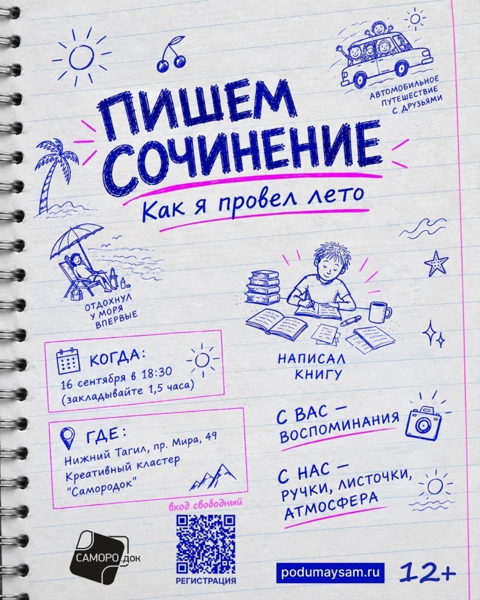 АВТОМОБИЛЬНОЕ
ПУТЕШЕСТВИЕ
С ДРУЗЬЯМИ
ПИШЕМ
СОЧИНЕНИЕ
Как я провел лето
ОТДОХНУЛ
У МОРЯ
ВПЕРВЫЕ
НАПИСАЛ
КНИГУ
КОГДА:
16 сентября в 18:30
(закладывайте 1,5 часа)
ГДЕ:
Нижний Тагил, пр. Мира, 49
Креативный кластер
"Самородок"
С ВАС –
ВОСПОМИНАНИЯ
С НАС –
РУЧКИ, ЛИСТОЧКИ,
АТМОСФЕРА
вход свободный
РЕГИСТРАЦИЯ
САМОРОДОК
podumaysam.ru
12+